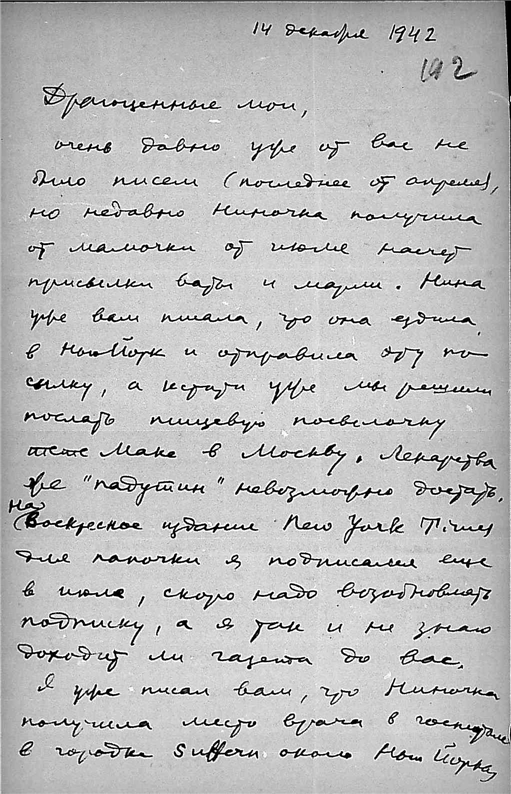 14 декабря 1942
192
Драгоценные мои,
очень давно уже от вас не
было писем (последнее от апреля),
но недавно Ниночка получила
от мамочки от июля насчет
присылки ваты и марли. Нина
уже вам писала, что она ездила
в Нью Йорк и отправила эту по-
сылку, а кстати уже мы решили
послать пищевую посылочку
тете Маке в Москву. Лекарства
же "падутин" невозможно достать.
На Воскресное издание New York Times
для папочки я подписался еще
в июле, скоро надо возобновлять
подписку, а я так и не знаю
доходит ли газета до вас.
Я уже писал вам, что Ниночка
получила место врача в госпитале
в городке Suffern около Нью Йорка,